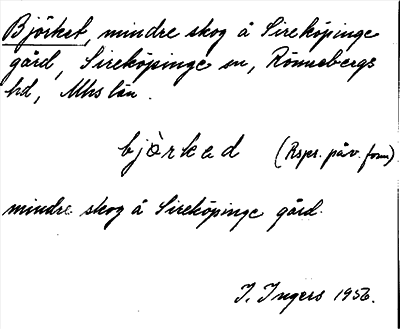 Björket, mindre skog å Sireköpinge
gård, Sireköpinge sn, Rönnebergs
hd, Mhs län.
bjòrkad (Rsps. påv. form)
mindre skog å Sireköpinge gård.
I. Ingers 1956.